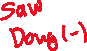 Saw
Doug (-)